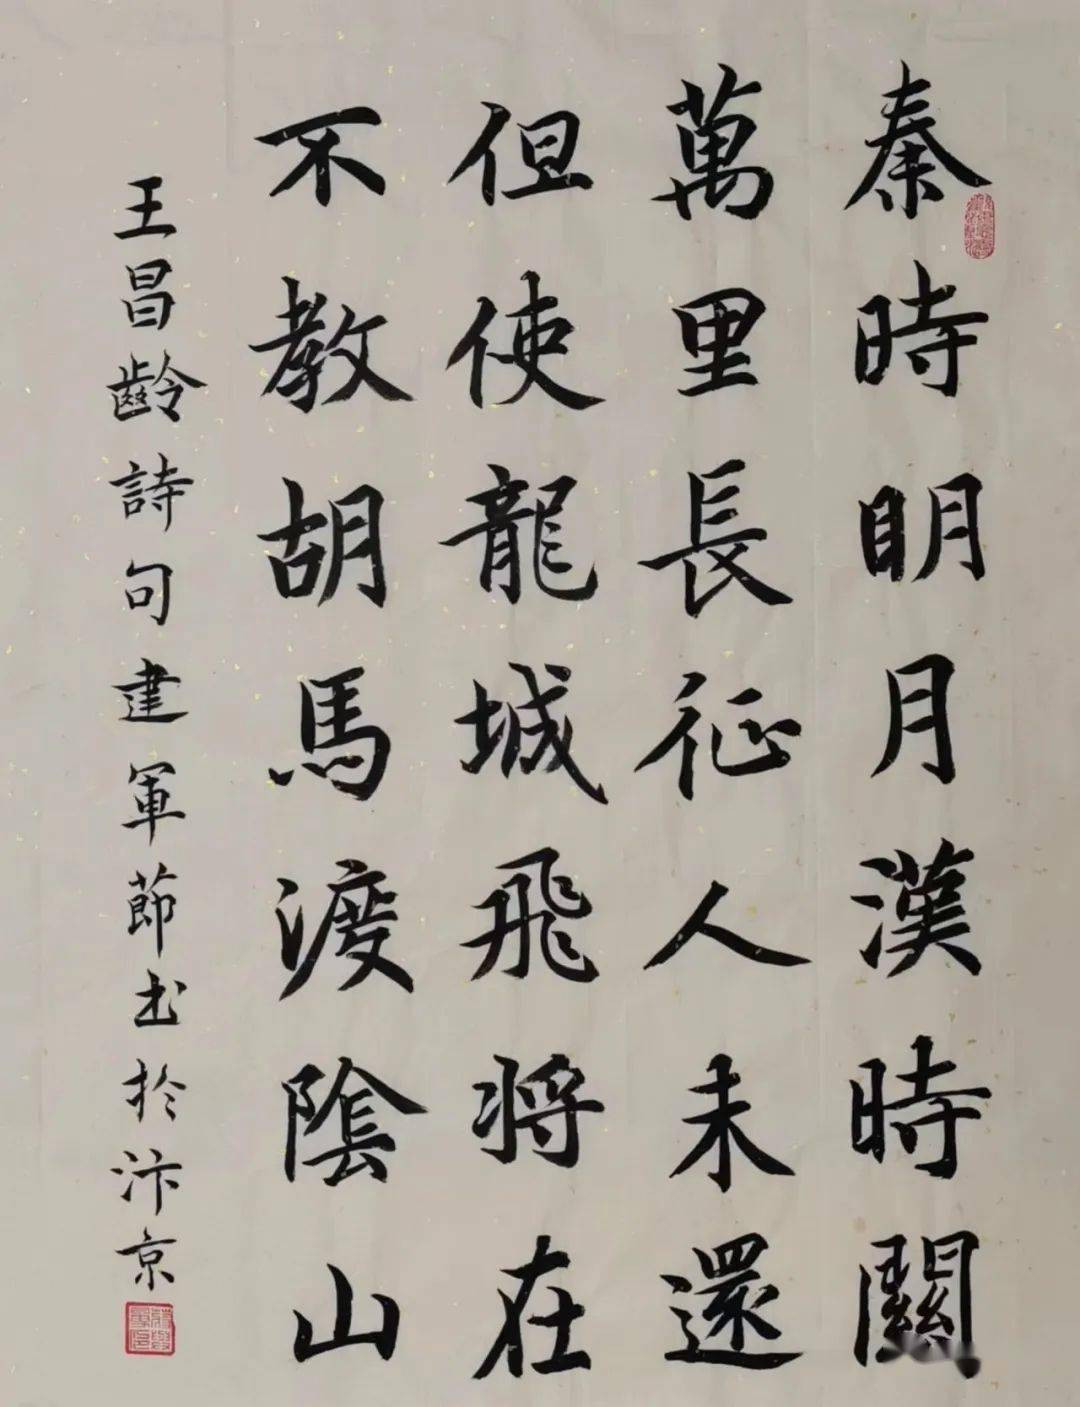 秦時明月漢時關
萬里長征人未還
但使龍城飛將在
不教胡馬渡陰山
王昌齡詩句建軍節书於汴京